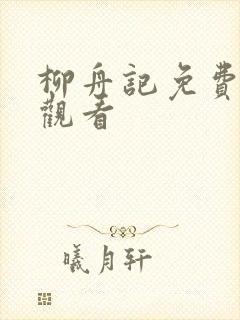 柳舟記免費
觀看
曦月轩